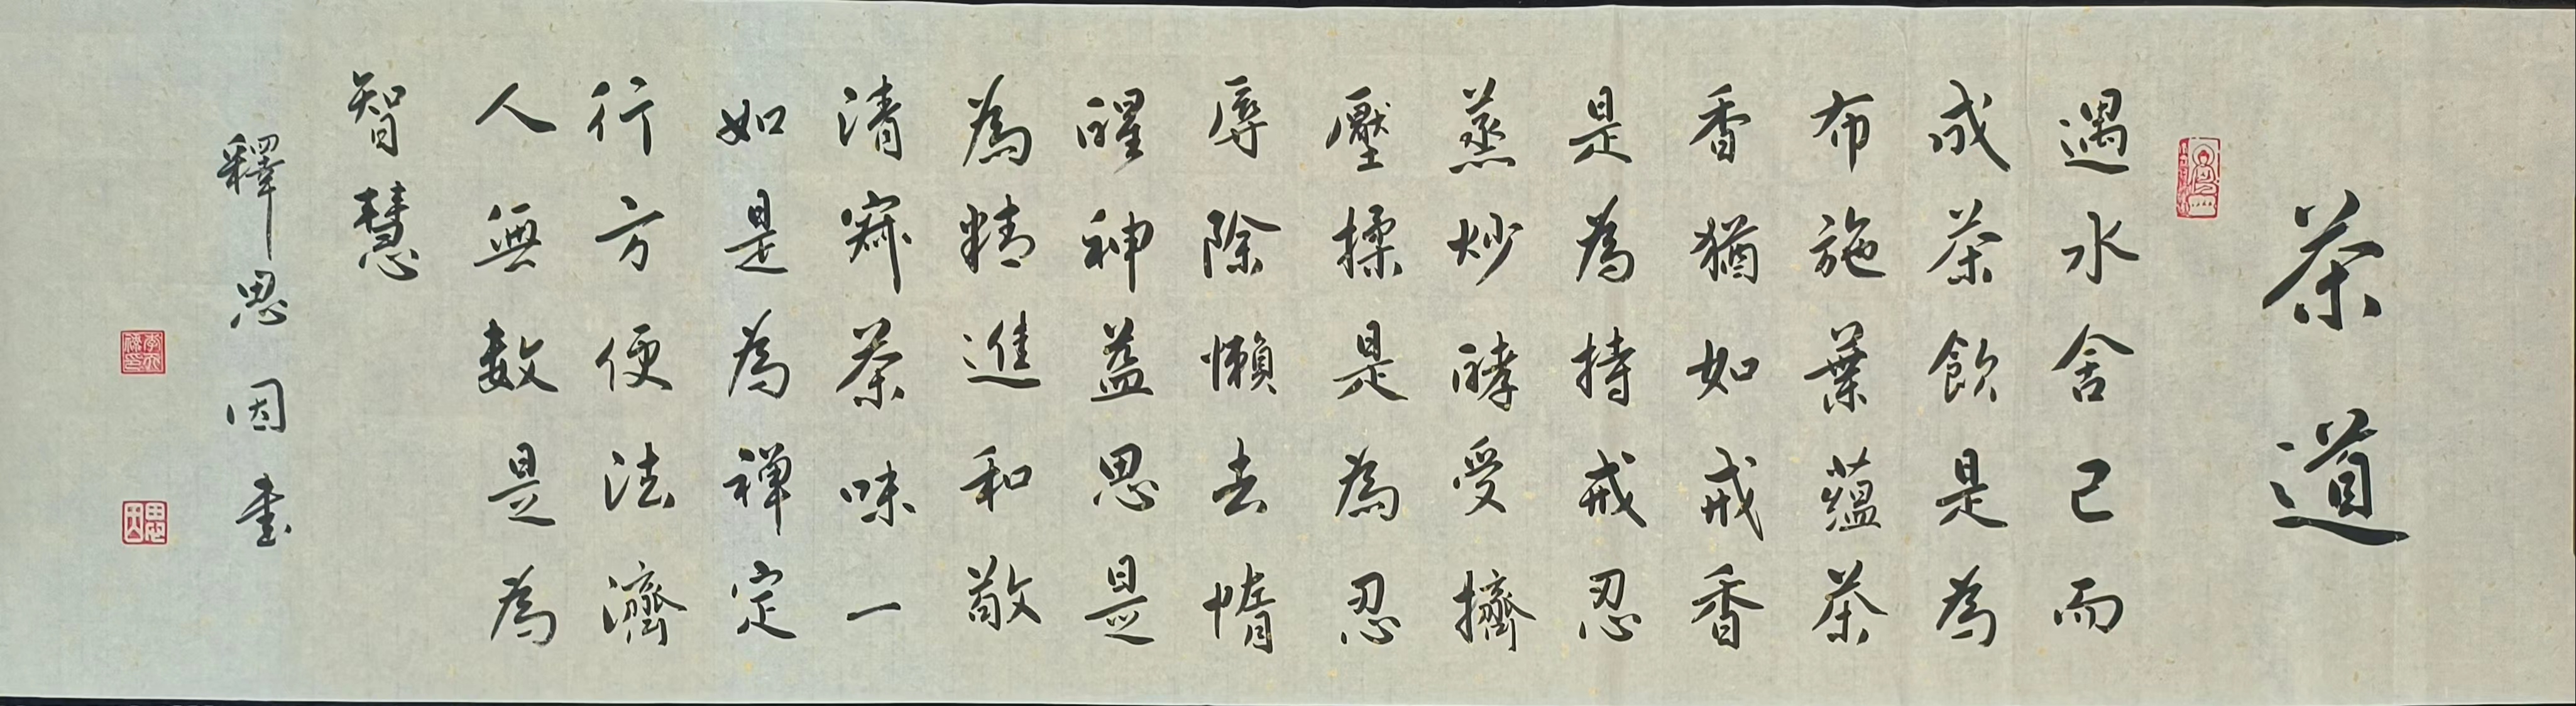 茶道
遇水舍己而
成茶飲是為
布施葉蘊茶
香猶如戒香
是為持戒忍
蒸炒酵受擠
壓揉是為忍
辱除懶去惰
醒神益思是
為精進和敬
清寂茶味一
如是為禅定
行方便法濟
人無数是為
智慧
釋思因書
思因